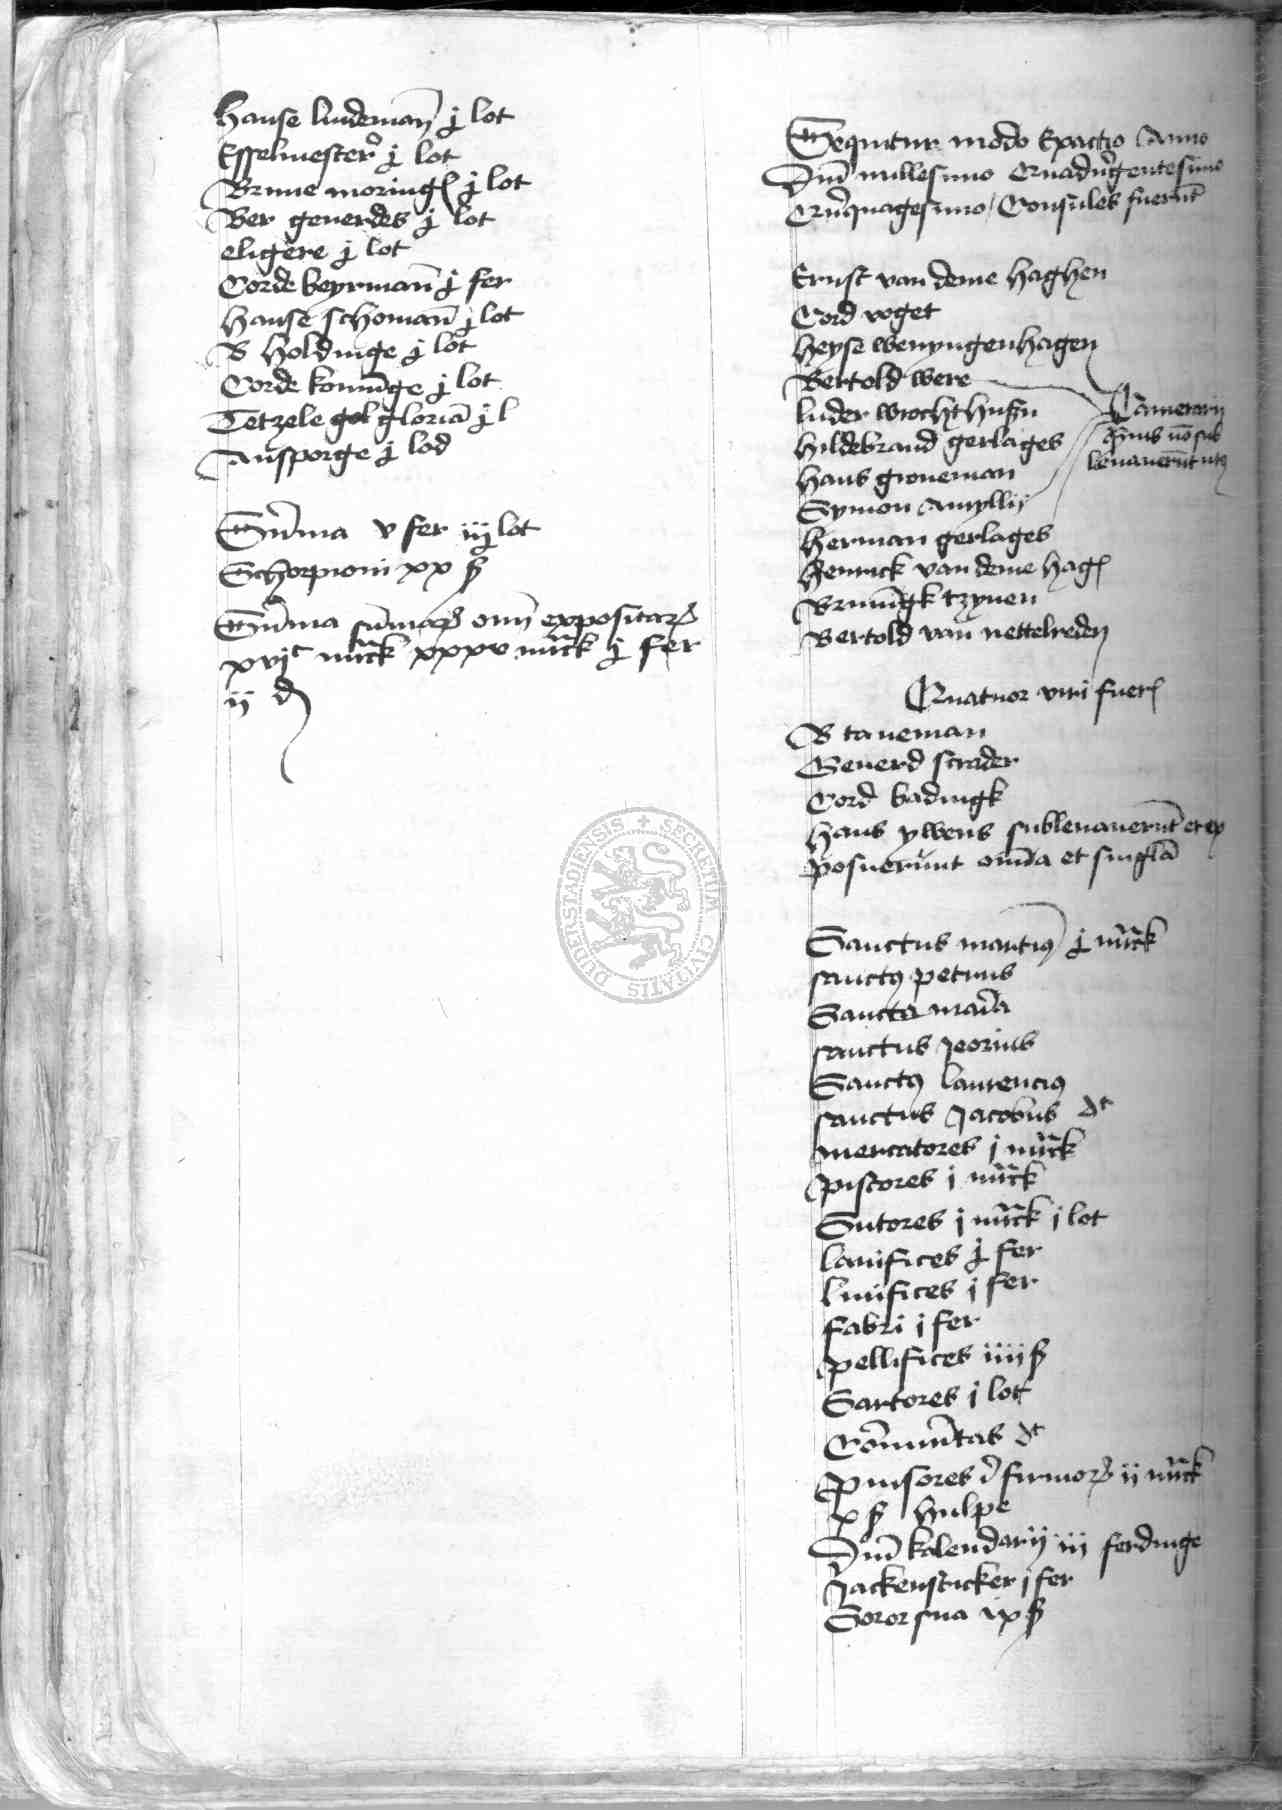 Hanse lindeman̄ j lot
Esselmester j lot
Brune moring j lot
Ber geuerdes j lot
eligere j lot
Corde beyrman̄ j fer
Hanse schoman̄ j lot
B holdinge j lot
Corde konnīge j lot
Tetzele gloriā j l
Ansporge j lod
Sūma v fer iij lot
Schorpioni xx ß
Sūma sūmaꝝ om̄ expositaꝝ
xvjᶜ mrck xxxv mrck j fer
ij d
Sequitur modo Exactio Anno
Dnī millesimo Quadringentesimo
Quīquagesimo / Consules fuerūt
Ernst van deme haghen
Cord voget
Heyse wenyngenhagen
Bertold were
Luder wrochthusen
Hildebrand gerlages
Hans groneman
Symon Amyllij
Herman gerlages
Henrick van deme hag
Brunīgk tzynen
Bertold van nettelreden
Camerarij
nō sub
leuauerūt
Quatuor viri fuer
B taneman
Geuerd scrader
Cord badingk
Hans ylwens subleuauerūt et ex
posuerunt om̄ia et singlā
Sanctus martinꝰ j mrck
sanctꝰ petrus
Sancta maria
sanctus Jeorius
Sanctꝰ laurenciꝰ
sanctus Jacobus dt
mercatores j mrck
pistores j mrck
Sutores j mrck j lot
lanifices j fer
linifices j fer
fabri j fer
pellifices iiij ß
Sartores j lot
Cōmunitas dt
prouisores īfirmoꝝ ij mrck
x ß hulpe
Dnī kalendarij iij ferdinge
Jackensticker j fer
Soror sua ix ß
SECRETUM CIVITATIS DUDERSTADIENSIS